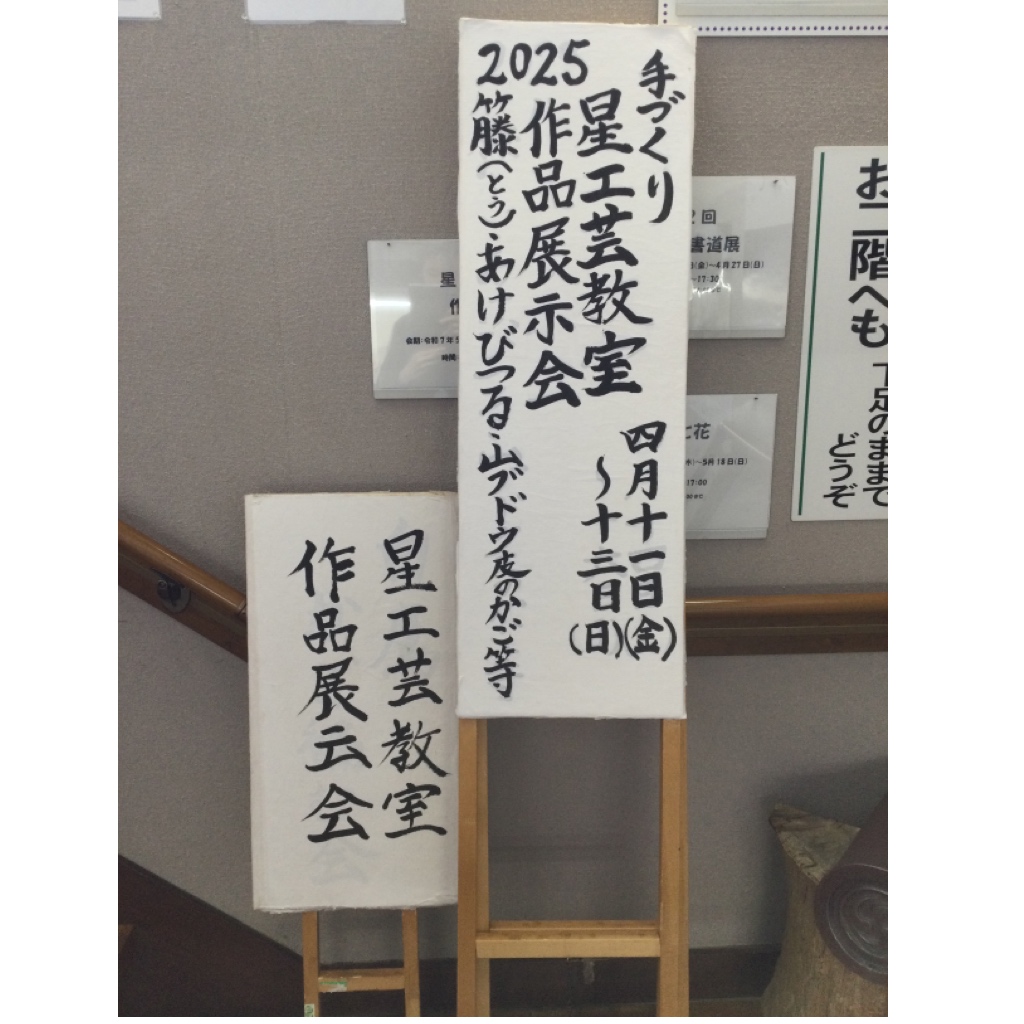 手づくり
星工芸教室
作品展示会
2025
籐(とう)・あけびつる・山ブドウ皮のかご等
四月十一日(金)
〜十三日(日)
星工芸教室
作品展示会
お二階へも
下足のままで
どうぞ
2回
書道展
(金)～4月27日(日)
～17:30
星
作
会期:令和7年
時間:
七花
(木)～5月18日(日)
17:00